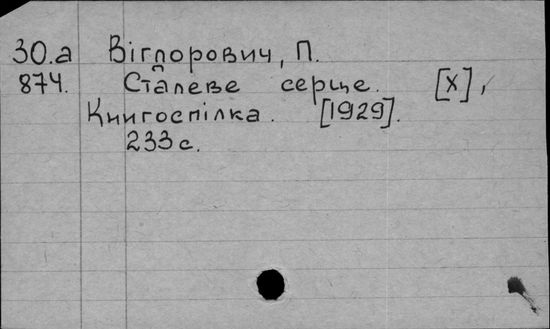 30.а Вігпорович, П.
874. Сталеве серце. [Х],
Книгоспілка. [1929].
233 с.